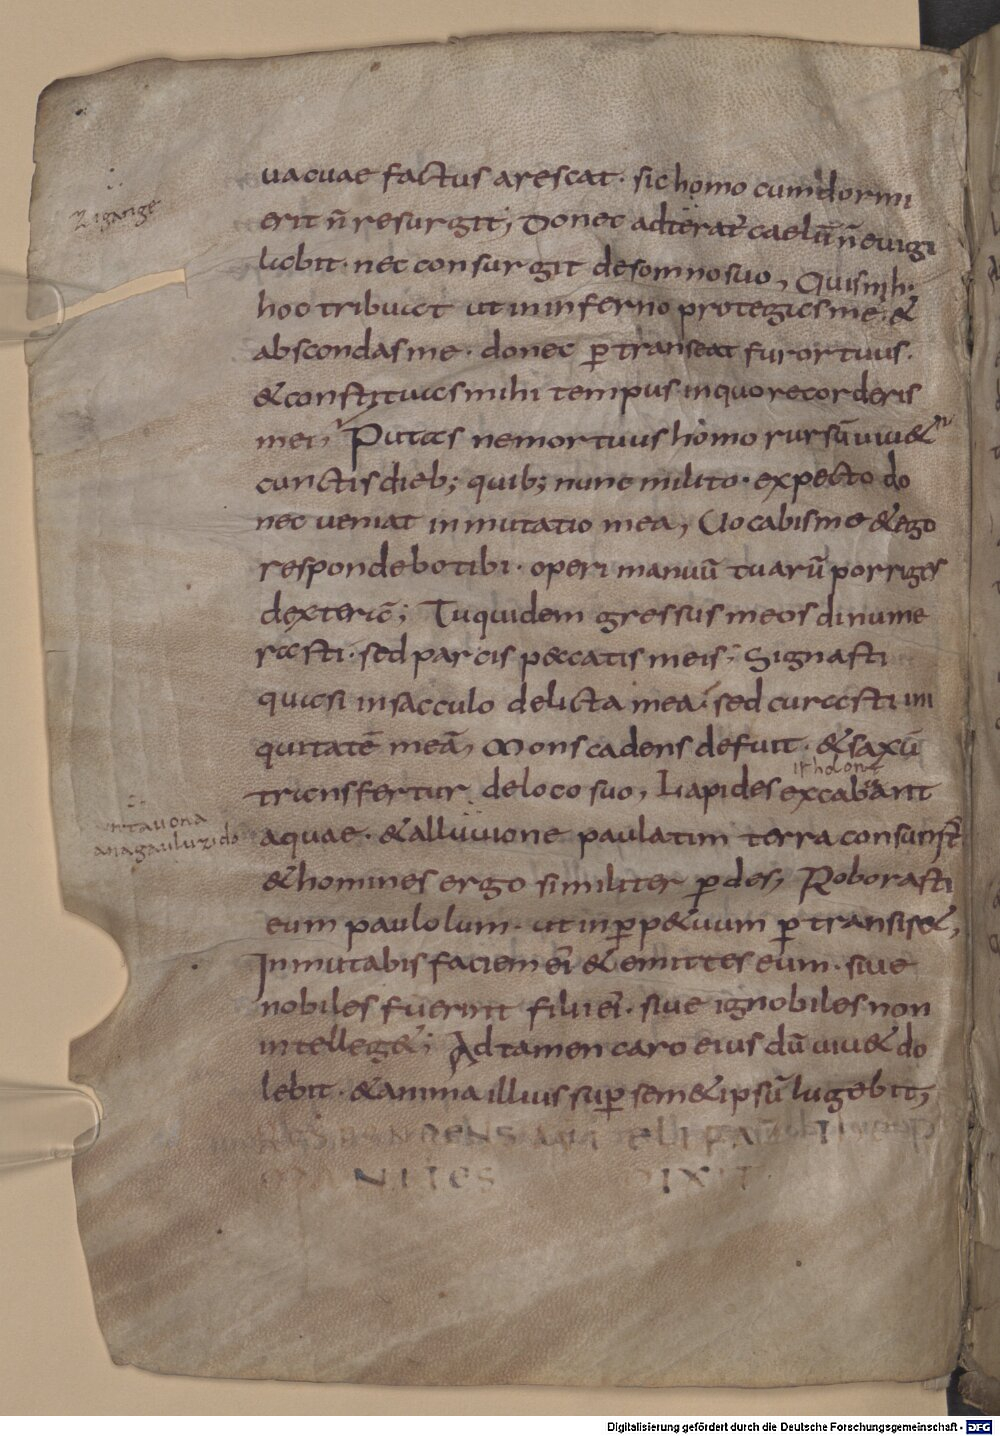 uacuae factus arescat · sic homo cum dormi
zigange
erit n̄ resurgit, Donec adterat' caelū n̄ euigi
labit · nec consurgit de somno suo, Quis mih·
hoc tribuat ut in inferno protegas me · &
abscondas me · donec p̄transeat furor tuus ·
& constituas mihi tempus in quo recorderis
mei; Putas ne mortuus homo rursū uiu&
cunctis dieb; quib; nunc milito · expecto do
nec ueniat inmutatio mea, Uocabis me & ego
respondebo tibi · operi manuū tuarū porriges
dexterā; Tu quidem gressus meos dinume
rasti · sed parcis peccatis meis; Signasti
quasi in sacculo delicta mea · sed curasti ini
quitatē meā, Mons cadens defuit · & saxū
transfertur de loco suo, Lapides excabant
aquae · & alluuione paulatim terra consumit'
& homines ergo similiter p̄des, Roborasti
eum paululum · ut in p̄p&uum p̄transis&,
Inmutabis faciem ei' & emittes eum · siue
nobiles fuerint filii ei' · siue ignobiles non
intelleg&; Adtamen caro eius dū uiu& do
lebit · & anima illius sup̄ sem&ipsū lugebit,
DIXIT
Digitalisierung gefördert durch die Deutsche Forschungsgemeinschaft - DFG